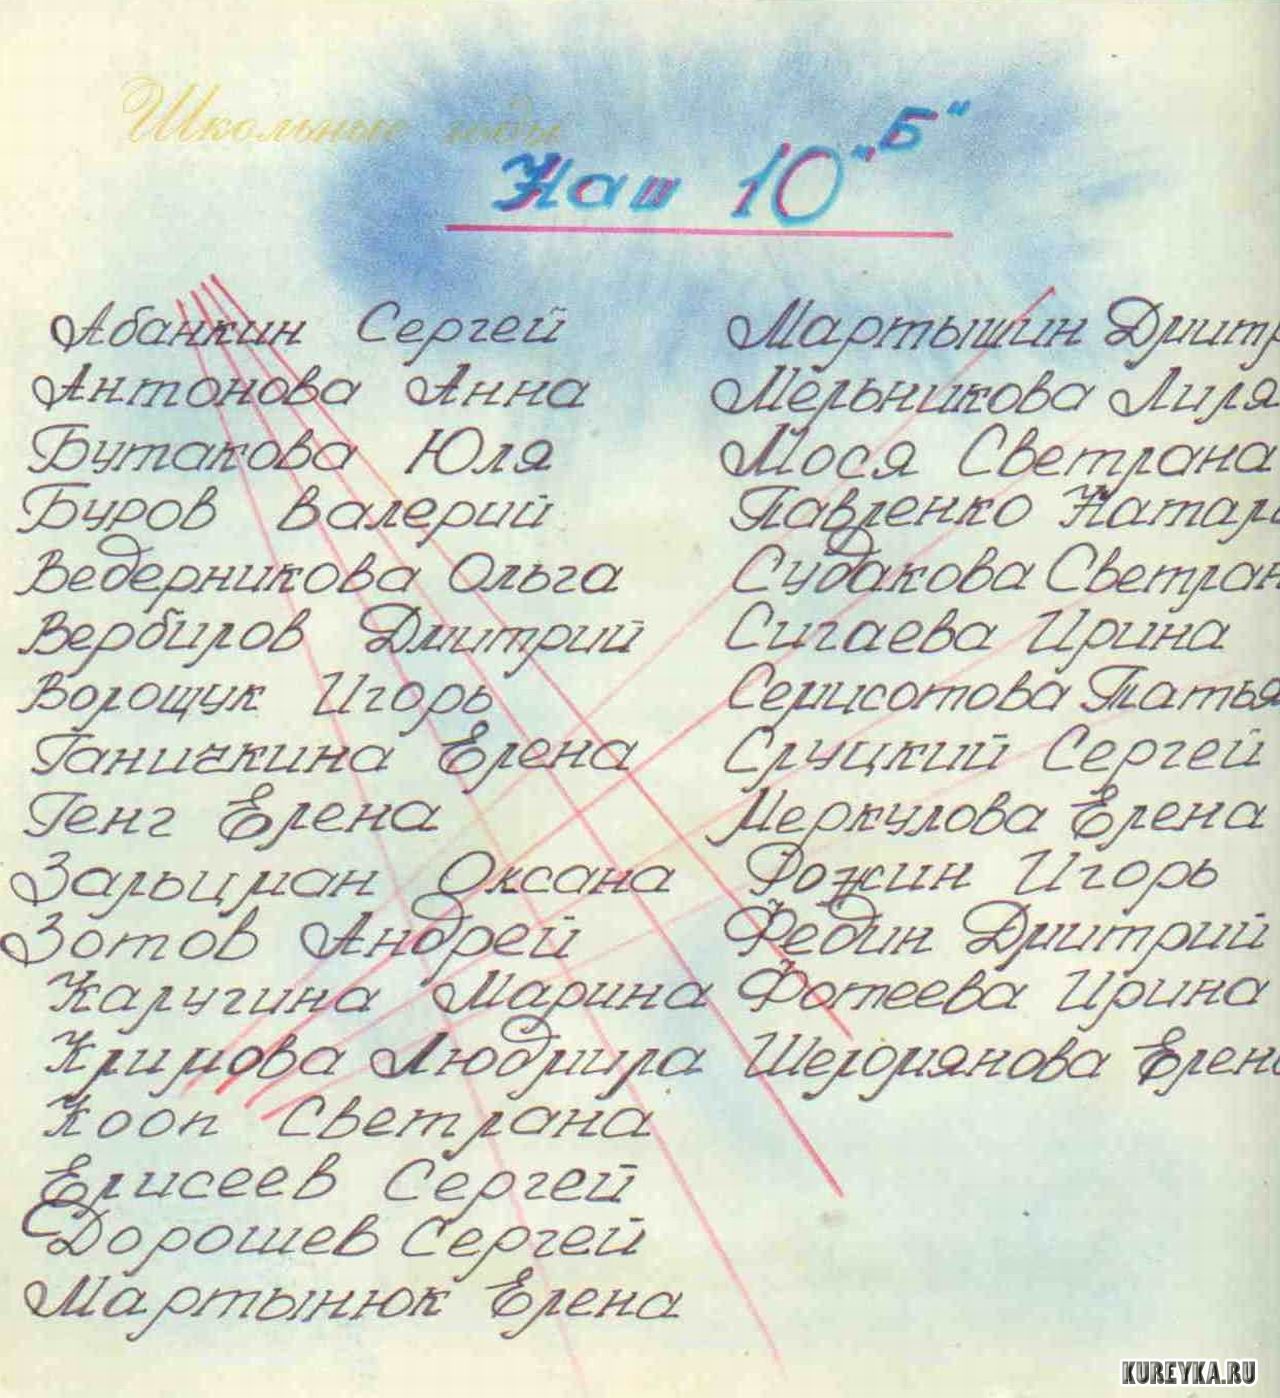 Школьные годы
Наш 10 „Б“
Абанкин Сергей
Антонова Анна
Бутакова Юля
Буров Валерий
Ведерникова Ольга
Вербилов Дмитрий
Ворощук Игорь
Ганичкина Елена
Генг Елена
Зальцман Оксана
Зотов Андрей
Калугина Марина
Климова Людмила
Кооп Светлана
Елисеев Сергей
Дорошев Сергей
Мартынюк Елена
Мартышин Дмитр
Мельникова Лиля
Мося Светлана
Павленко Натал
Судакова Светлан
Сигаева Ирина
Семисотова Татья
Слуцкий Сергей
Меркулова Елена
Рожин Игорь
Федин Дмитрий
Фотеева Ирина
Шеломянова Елен
KUREYKA.RU